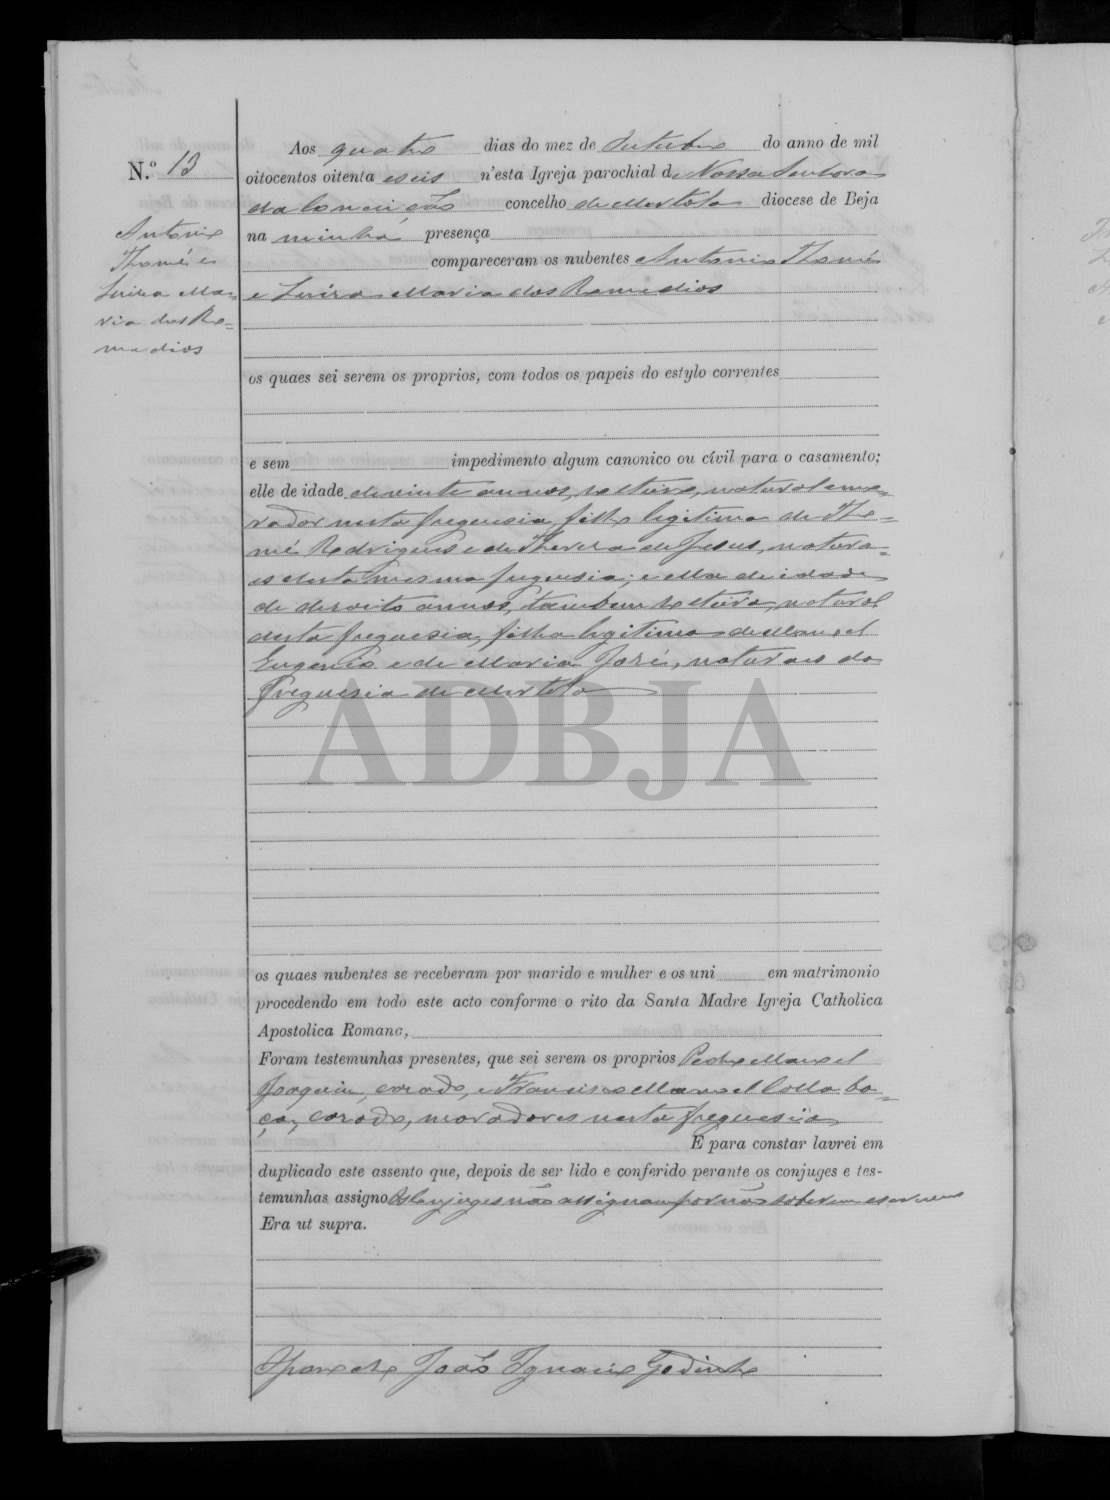 N.º 13
Antonio
Thomé e
Luiza Ma-
ria dos Re-
medios
Aos quatro dias do mez de Outubro do anno de mil
oitocentos oitenta e seis n'esta Igreja parochial de Nossa Senhora
da Conceição concelho de Mertola diocese de Beja
na minha presença
compareceram os nubentes Antonio Thomé
e Luiza Maria dos Remedios
os quaes sei serem os proprios, com todos os papeis do estylo correntes
e sem impedimento algum canonico ou civil para o casamento;
elle de idade de vinte annos, solteiro, natural e mo-
rador nesta freguesia, filho legitimo de Tho-
mé Rodrigues e de Thereza de Jesus, natura-
es desta mesma freguesia; e ella de idade
de desoito annos, tambem solteira, natural
desta freguesia, filha legitima de Manoel
Eugenio e de Maria José, naturaes da
freguesia de Mertola
ADBJA
os quaes nubentes se receberam por marido e mulher e os uni em matrimonio
procedendo em todo este acto conforme o rito da Santa Madre Igreja Catholica
Apostolica Romana,
Foram testemunhas presentes, que sei serem os proprios Pedro Manoel
Joaquim, casado, e Francisco Manoel Colla
casado, moradores nesta freguesia
E para constar lavrei em
duplicado este assento que, depois de ser lido e conferido perante os conjuges e tes-
temunhas assigno Os conjuges não assignam por não saberem escrever
Era ut supra.
O Parocho João Ignacio Godinho